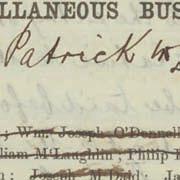 LLANEOUS BUS
Patrick
; Wm. Joseph O'Donnell
liam M'Laughlin; Philip
n; Joseph M'Daid; Ja